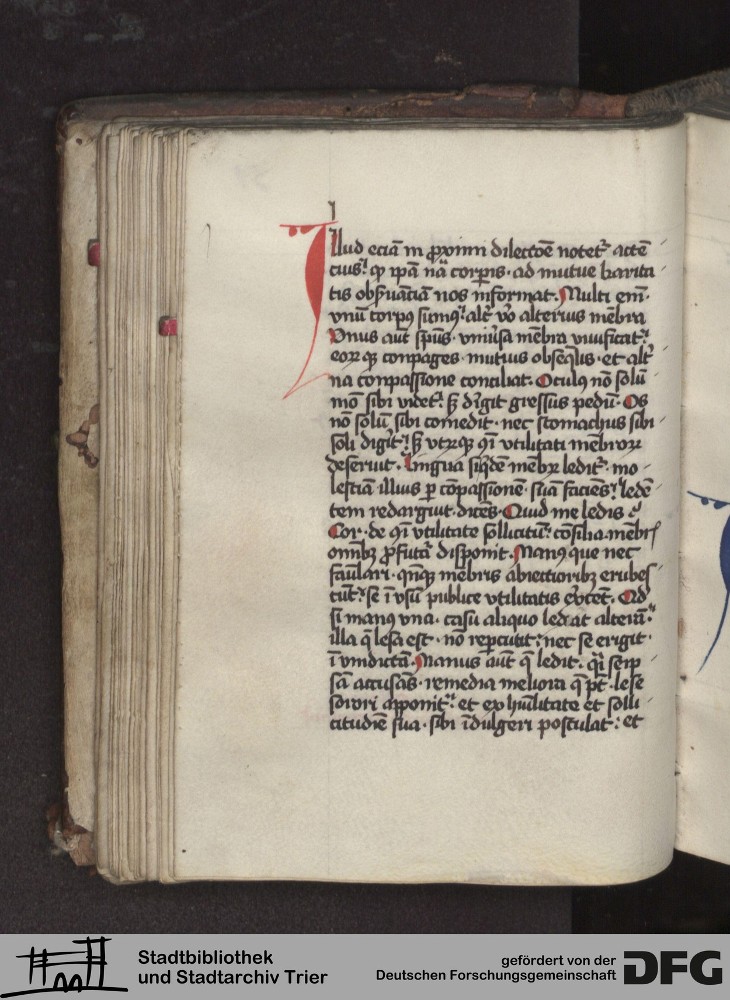 Illud eciā in ꝓximi dilectōe notetᷣ attē
cius᷒ qꝫ ip̄a nr̄a corpis · ad mutue karita
tis obsuāciā nos informat. Multi em̄ ·
vnū corpꝰ sumꝰ alt̾ vo alterius mēbra
Vnus aūt sp̄us · vniūsa mēbra viuificat
eorꝝ qꝫ conpages · mutuis obseq̄is · et alt̾
na conpassione conciliat. Oculus nō solū
mō sibi videt sꝫ dirigit gressus pedū · Os
nō solū sibi comedit · nec stomachus sibi
soli digit sꝫ vtrꝫqꝫ qī vtilitati mēbrorꝝ
deseruit. Lingua siqdē mēbꝝ leditᷣ · mo
lestiā illius ꝑ cōpassionē · suā faciēs ledē
tem redarguit · dicēs · Quid me ledis
Cor · de qī vtilitate sollicitū cōsilia · mēbr
omībꝫ ꝓfutā disponit. Manꝰ que nec
faulari · qnqꝫ mēbris abiectioribꝫ erubes
cūt se ī vsū publice vtilitatis excēt. Qd
si manꝰ vna · casu aliquo ledat alterā
illa q̄ lesa est · nō repcutit nec se erigit ·
ī vindictā. Manus aūt q̄ ledit · qī seip
sā accusās · remedia meliora q̄ pt · lese
sorori apponit et ex hūilitate et solli
citudīe sua · sibi īdulgeri postulat et
Stadtbibliothek
und Stadtarchiv Trier
gefördert von der
Deutschen Forschungsgemeinschaft
DFG